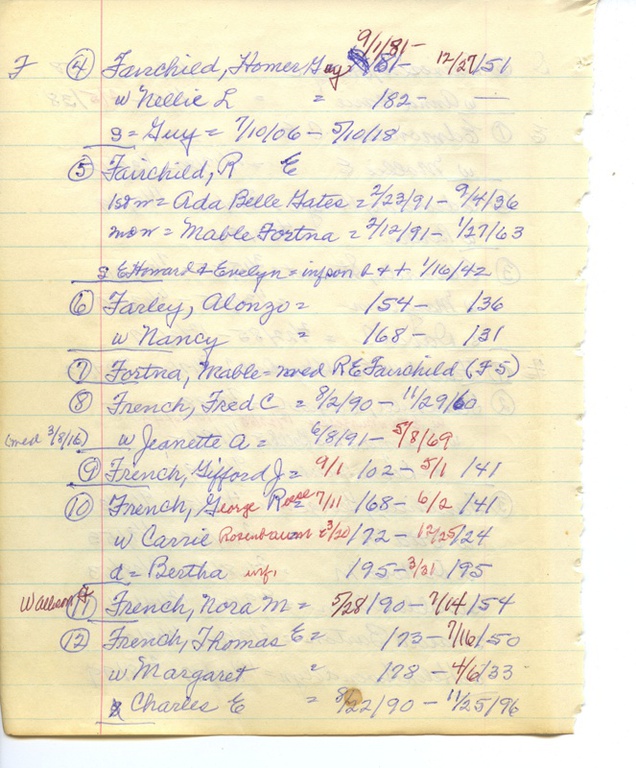 9/1/81-
F ④ Fairchild, Homer Guy /81- 12/27/51
w Nellie L = /82- —
s = Guy = 7/10/06 - 5/10/18
⑤ Fairchild, R E
1st m = Ada Belle Gates = 2/23/91 - 9/4/36
= Mable Fortna = 2/12/91 - 1/27/63
s E Howard & Evelyn = inf son b & + 1/16/42
⑥ Farley, Alonzo = /54- /36
w Nancy = /68- /31
⑦ Fortna, Mable = med R E Fairchild (F5)
⑧ French, Fred C = 8/2/90 - 11/29/60
(med 3/8/16) w Jeanette A = 6/8/91 - 5/8/69
⑨ French, Gifford J = 9/1 /02 - 5/1 /41
⑩ French, George = 7/11 /68 - 6/2 /41
w Carrie Rosenbaum 3/20/72 - 12/25/24
d = Bertha inf. /95 - 3/31 /95
⑪ French, Nora M = 5/28/90 - 7/14/54
⑫ French, Thomas E = /73 - 7/16/50
w Margaret = /78 - 4/6/33
Charles E = 8/22/90 - 11/25/96